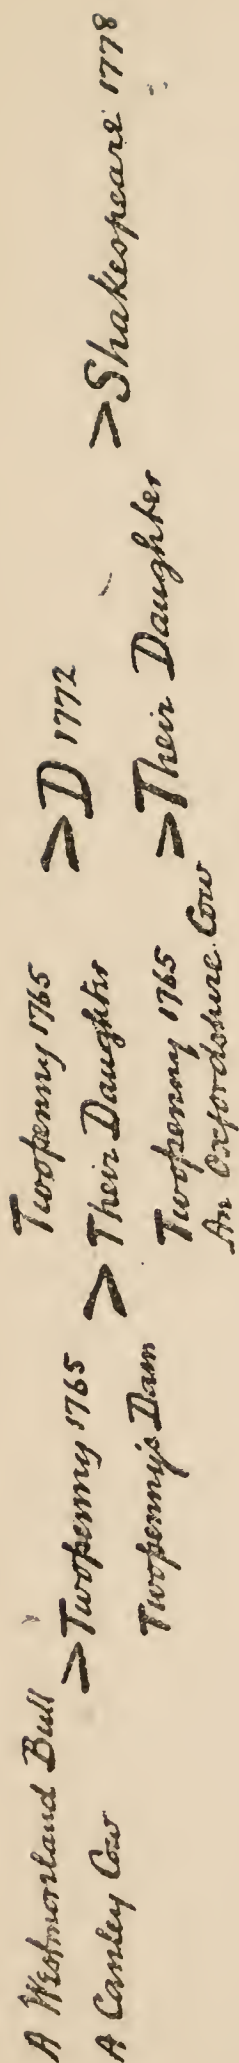 A Westmorland Bull
A Canley Cow
>Twopenny 1765
Twopenny's Dam
Twopenny 1765
>Their Daughter
>D 1772
Twopenny 1765
An Oxfordshire Cow
>Their Daughter
>Shakespeare 1778